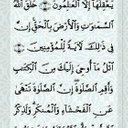 يَعْقِلُهَآ إِلَّا ٱلْعَٰلِمُونَ ۝ خَلَقَ ٱللَّهُ
ٱلسَّمَٰوَٰتِ وَٱلْأَرْضَ بِٱلْحَقِّ إِنَّ
فِى ذَٰلِكَ لَءَايَةً لِّلْمُؤْمِنِينَ ۝
ٱتْلُ مَآ أُوحِىَ إِلَيْكَ مِنَ ٱلْكِتَٰبِ
وَأَقِمِ ٱلصَّلَوٰةَ إِنَّ ٱلصَّلَوٰةَ تَنْهَىٰ
عَنِ ٱلْفَحْشَآءِ وَٱلْمُنكَرِ وَلَذِكْرُ